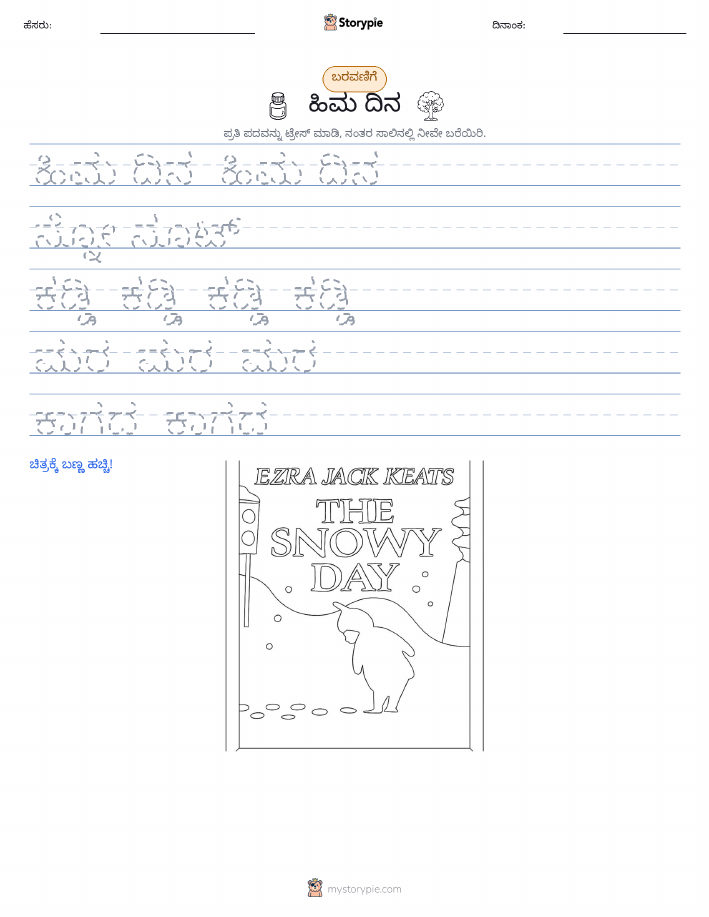 ಹೆಸರು:
Storypie
ದಿನಾಂಕ:
ಬರವಣಿಗೆ
ಹಿಮ ದಿನ
ಪ್ರತಿ ಪದವನ್ನು ಟ್ರೇಸ್ ಮಾಡಿ, ನಂತರ ಸಾಲಿನಲ್ಲಿ ನೀವೇ ಬರೆಯಿರಿ.
ಹಿಮ ದಿನ ಹಿಮ ದಿನ
ಸೂಟ್
ಕಡ್ಡಿ ಕಡ್ಡಿ ಕಡ್ಡಿ ಕಡ್ಡಿ
ಮರ ಮರ ಮರ
ಕಾಗದ ಕಾಗದ
ಚಿತ್ರಕ್ಕೆ ಬಣ್ಣ ಹಚ್ಚಿ!
EZRA JACK KEATS
THE
SNOWY
DAY
mystorypie.com